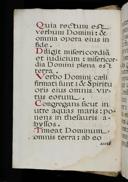 Quia rectum est
verbum Domini: &
omnia opera eius in
fide.
Diligit misericordiã
et iudicium: misericor-
dia Domini plena est
terra.
Verbo Domini cæli
firmati sunt: & Spiritu
oris eius omnis vir-
tus eorum.
Congregans sicut in
utre aquas maris: po-
nens in thesauris a-
byssos.
Timeat Dominum
omnis terra: ab eo